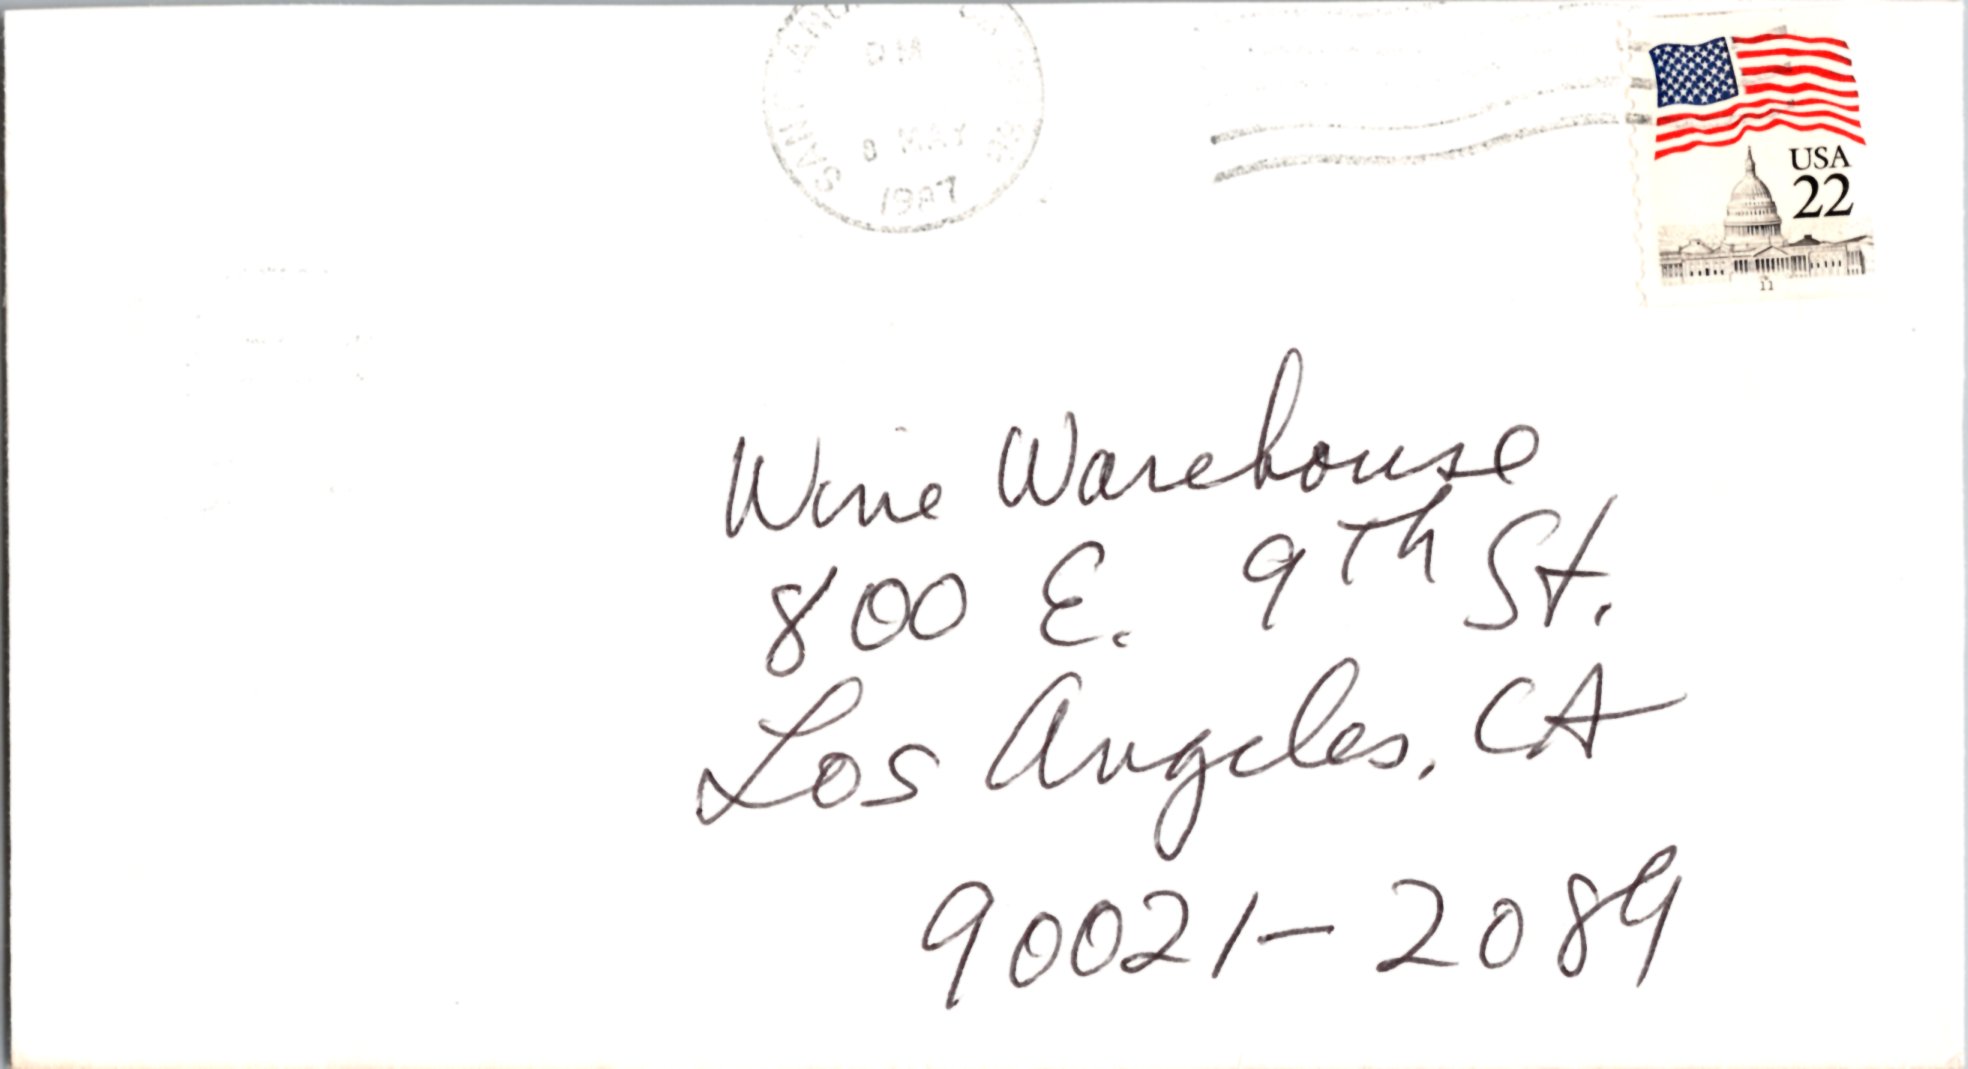 PM
8 MAY
1987
USA
22
11
Wine Warehouse
800 E. 9th St.
Los Angeles, CA
90021-2089